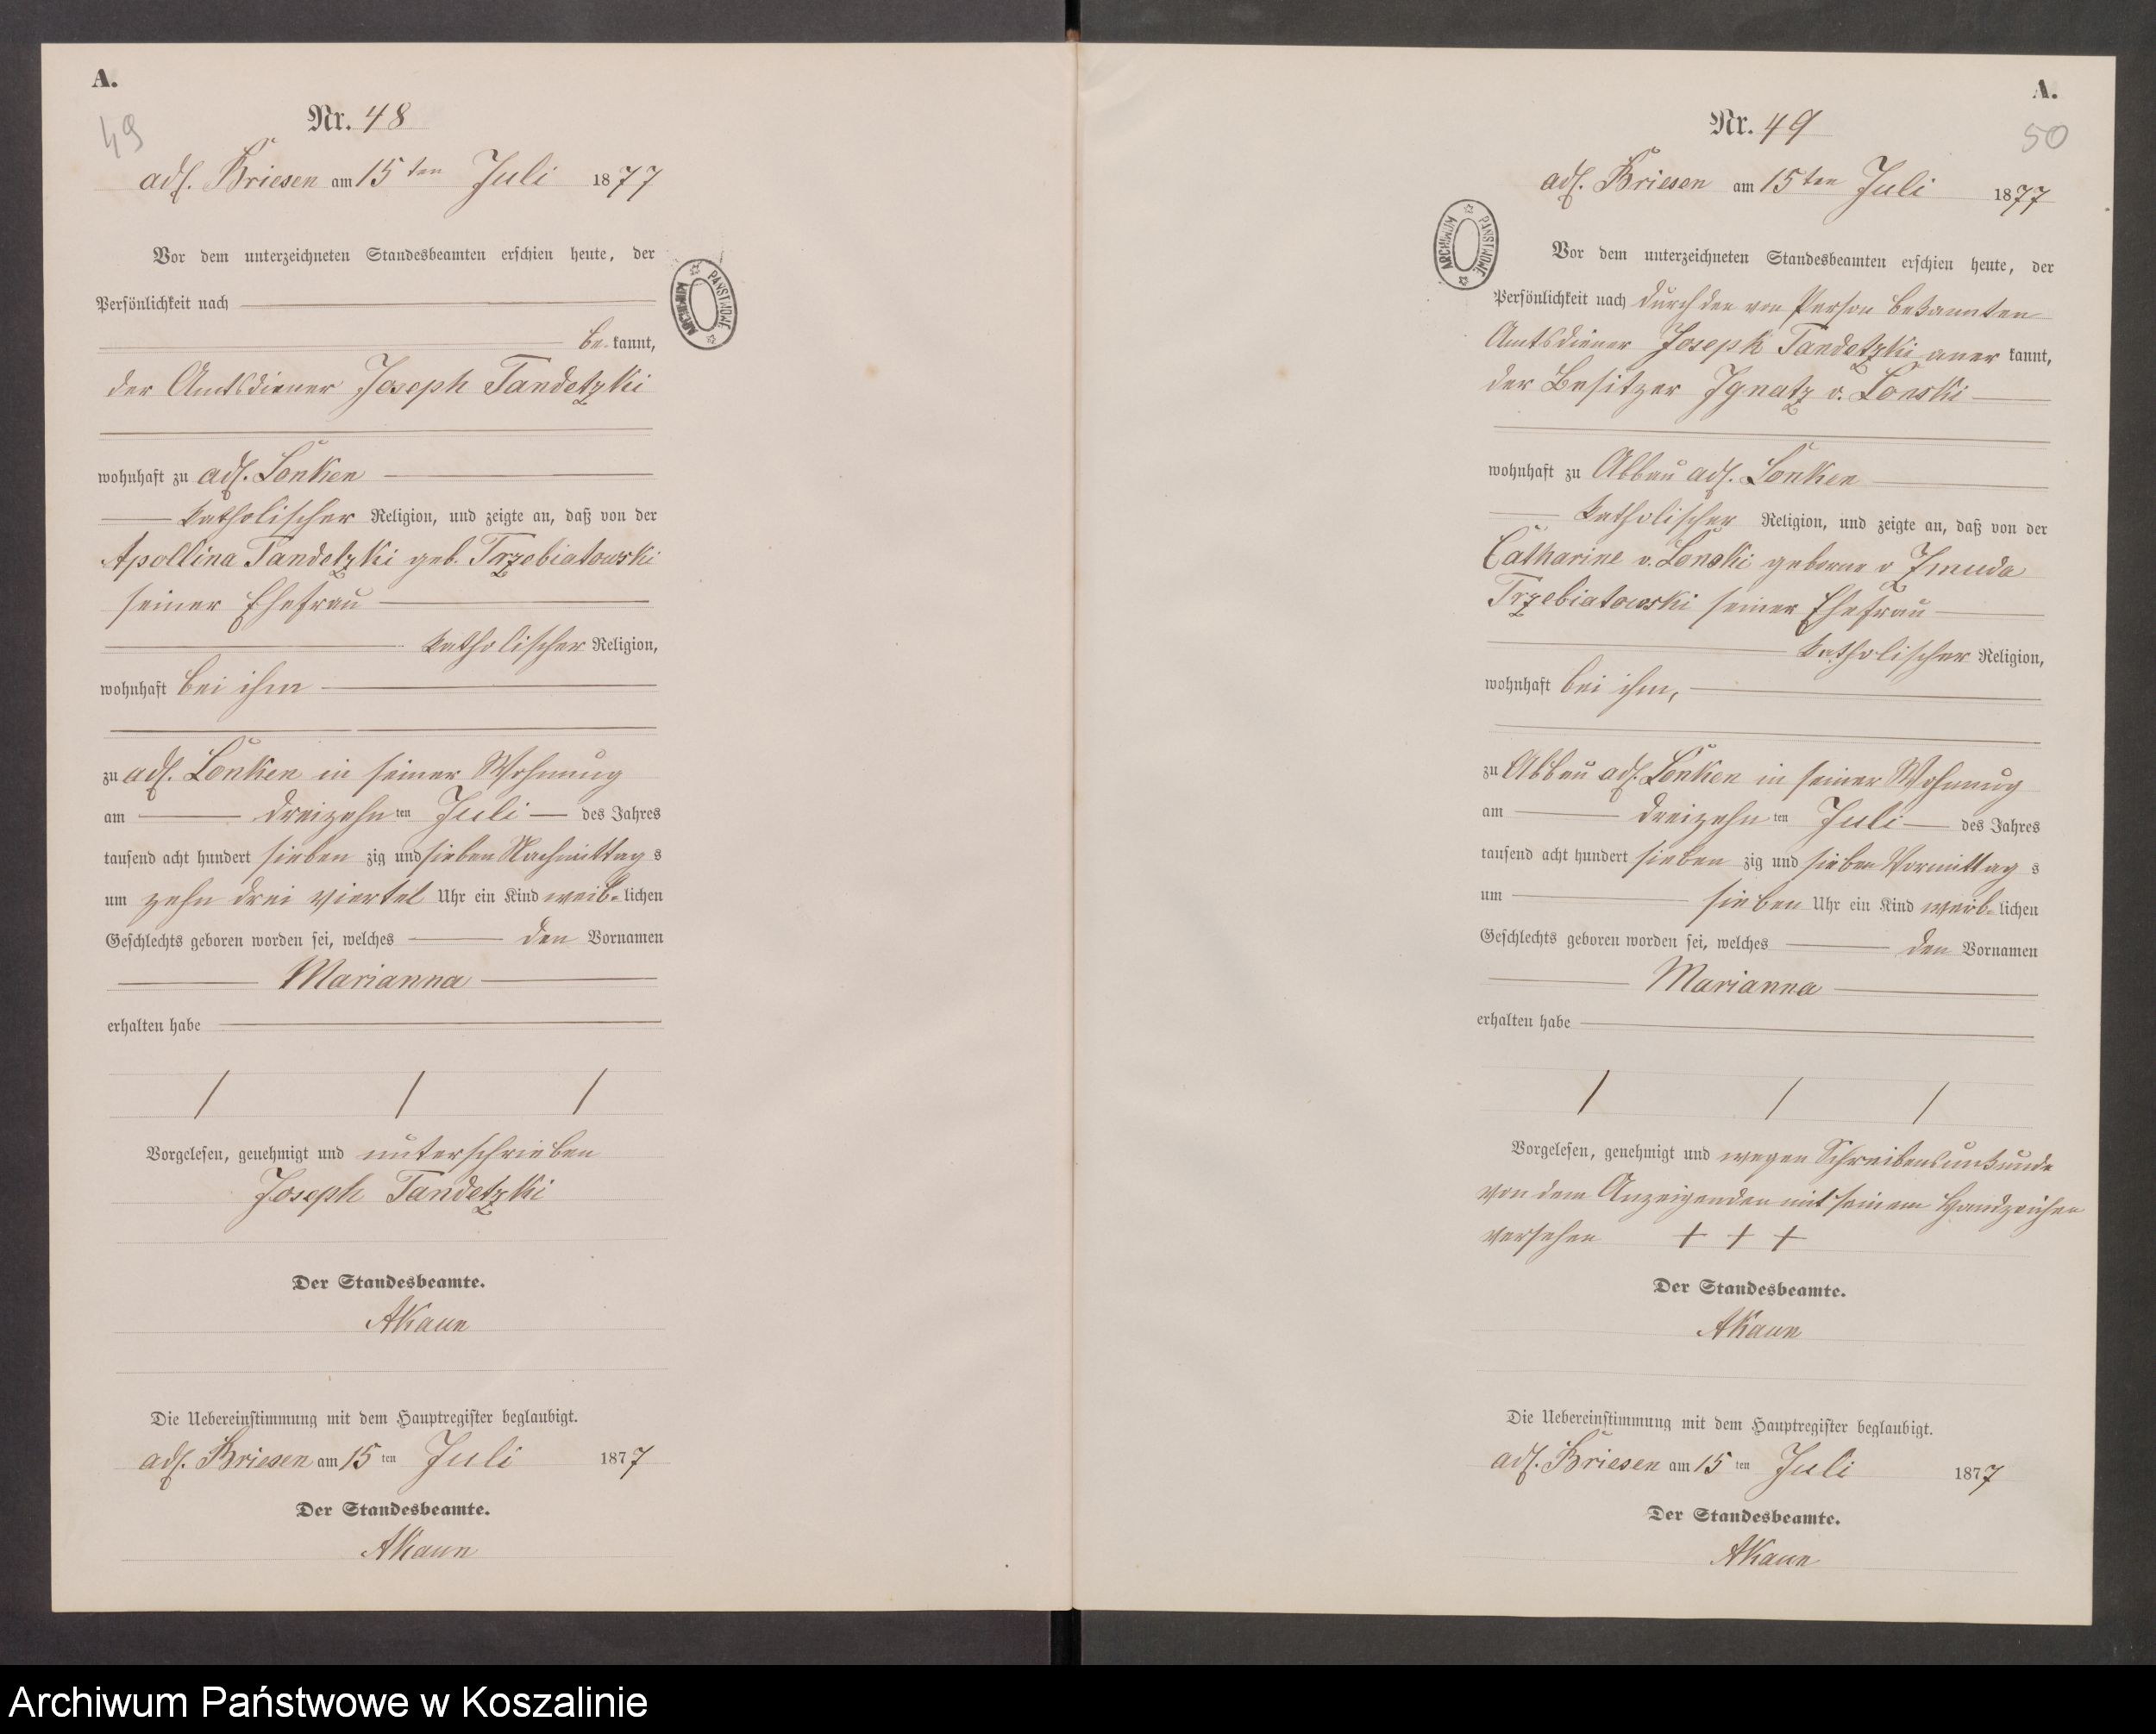 A.
49
Nr. 48
adl. Briesen am 15ten Juli 1877
Vor dem unterzeichneten Standesbeamten erschien heute, der
Persönlichkeit nach
be-kannt,
der Amtsdiener Joseph Tandetzki
wohnhaft zu adl. Lonken
katholischer Religion, und zeigte an, daß von der
Apollina Tandetzki geb. Trzebiatowski
seiner Ehefrau
katholischer Religion,
wohnhaft bei ihm
zu adl. Lonken in seiner Wohnung
am dreizehn ten Juli des Jahres
tausend acht hundert sieben zig und sieben Nachmittag s
um zehn drei viertel Uhr ein Kind weib-lichen
Geschlechts geboren worden sei, welches den Vornamen
Marianna
erhalten habe
Vorgelesen, genehmigt und unterschrieben
Joseph Tandetzki
Der Standesbeamte.
AKaun
Die Uebereinstimmung mit dem Hauptregister beglaubigt.
adl. Briesen am 15 ten Juli 1877
Der Standesbeamte.
AKaun
ARCHIWUM PAŃSTWOWE
A.
50
Nr. 49
adl. Briesen am 15ten Juli 1877
ARCHIWUM PAŃSTWOWE
Vor dem unterzeichneten Standesbeamten erschien heute, der
Persönlichkeit nach durch den von Person bekannten
Amtsdiener Joseph Tandetzki aner kannt,
der Besitzer Ignatz v. Lonski
wohnhaft zu Abbau adl. Lonken
katholischer Religion, und zeigte an, daß von der
Catharine v. Lonski geborne v Zmuda
Trzebiatowski seiner Ehefrau
katholischer Religion,
wohnhaft bei ihm,
zu Abbau adl. Lonken in seiner Wohnung
am dreizehn ten Juli des Jahres
tausend acht hundert sieben zig und sieben Vormittag s
um sieben Uhr ein Kind weib-lichen
Geschlechts geboren worden sei, welches den Vornamen
Marianna
erhalten habe
Vorgelesen, genehmigt und wegen Schreibensunkunde
von dem Anzeigenden mit seinem Handzeichen
versehen + + +
Der Standesbeamte.
AKaun
Die Uebereinstimmung mit dem Hauptregister beglaubigt.
adl. Briesen am 15 ten Juli 1877
Der Standesbeamte.
AKaun
Archiwum Państwowe w Koszalinie